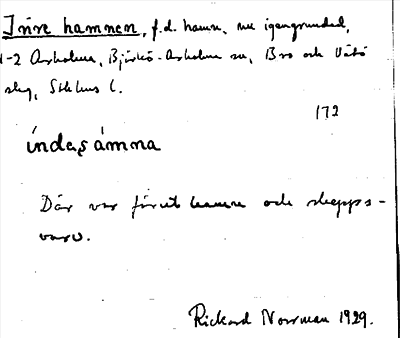 Inre hamnen, f.d. hamn, nu igengrundad,
1-2 Arholma, Björkö-Arholma sn, Bro och Vätö
skg, Sthlms l.
172
índaʂámna
Där var förut hamn och skepps-
varv.
Rickard Norrman 1929.